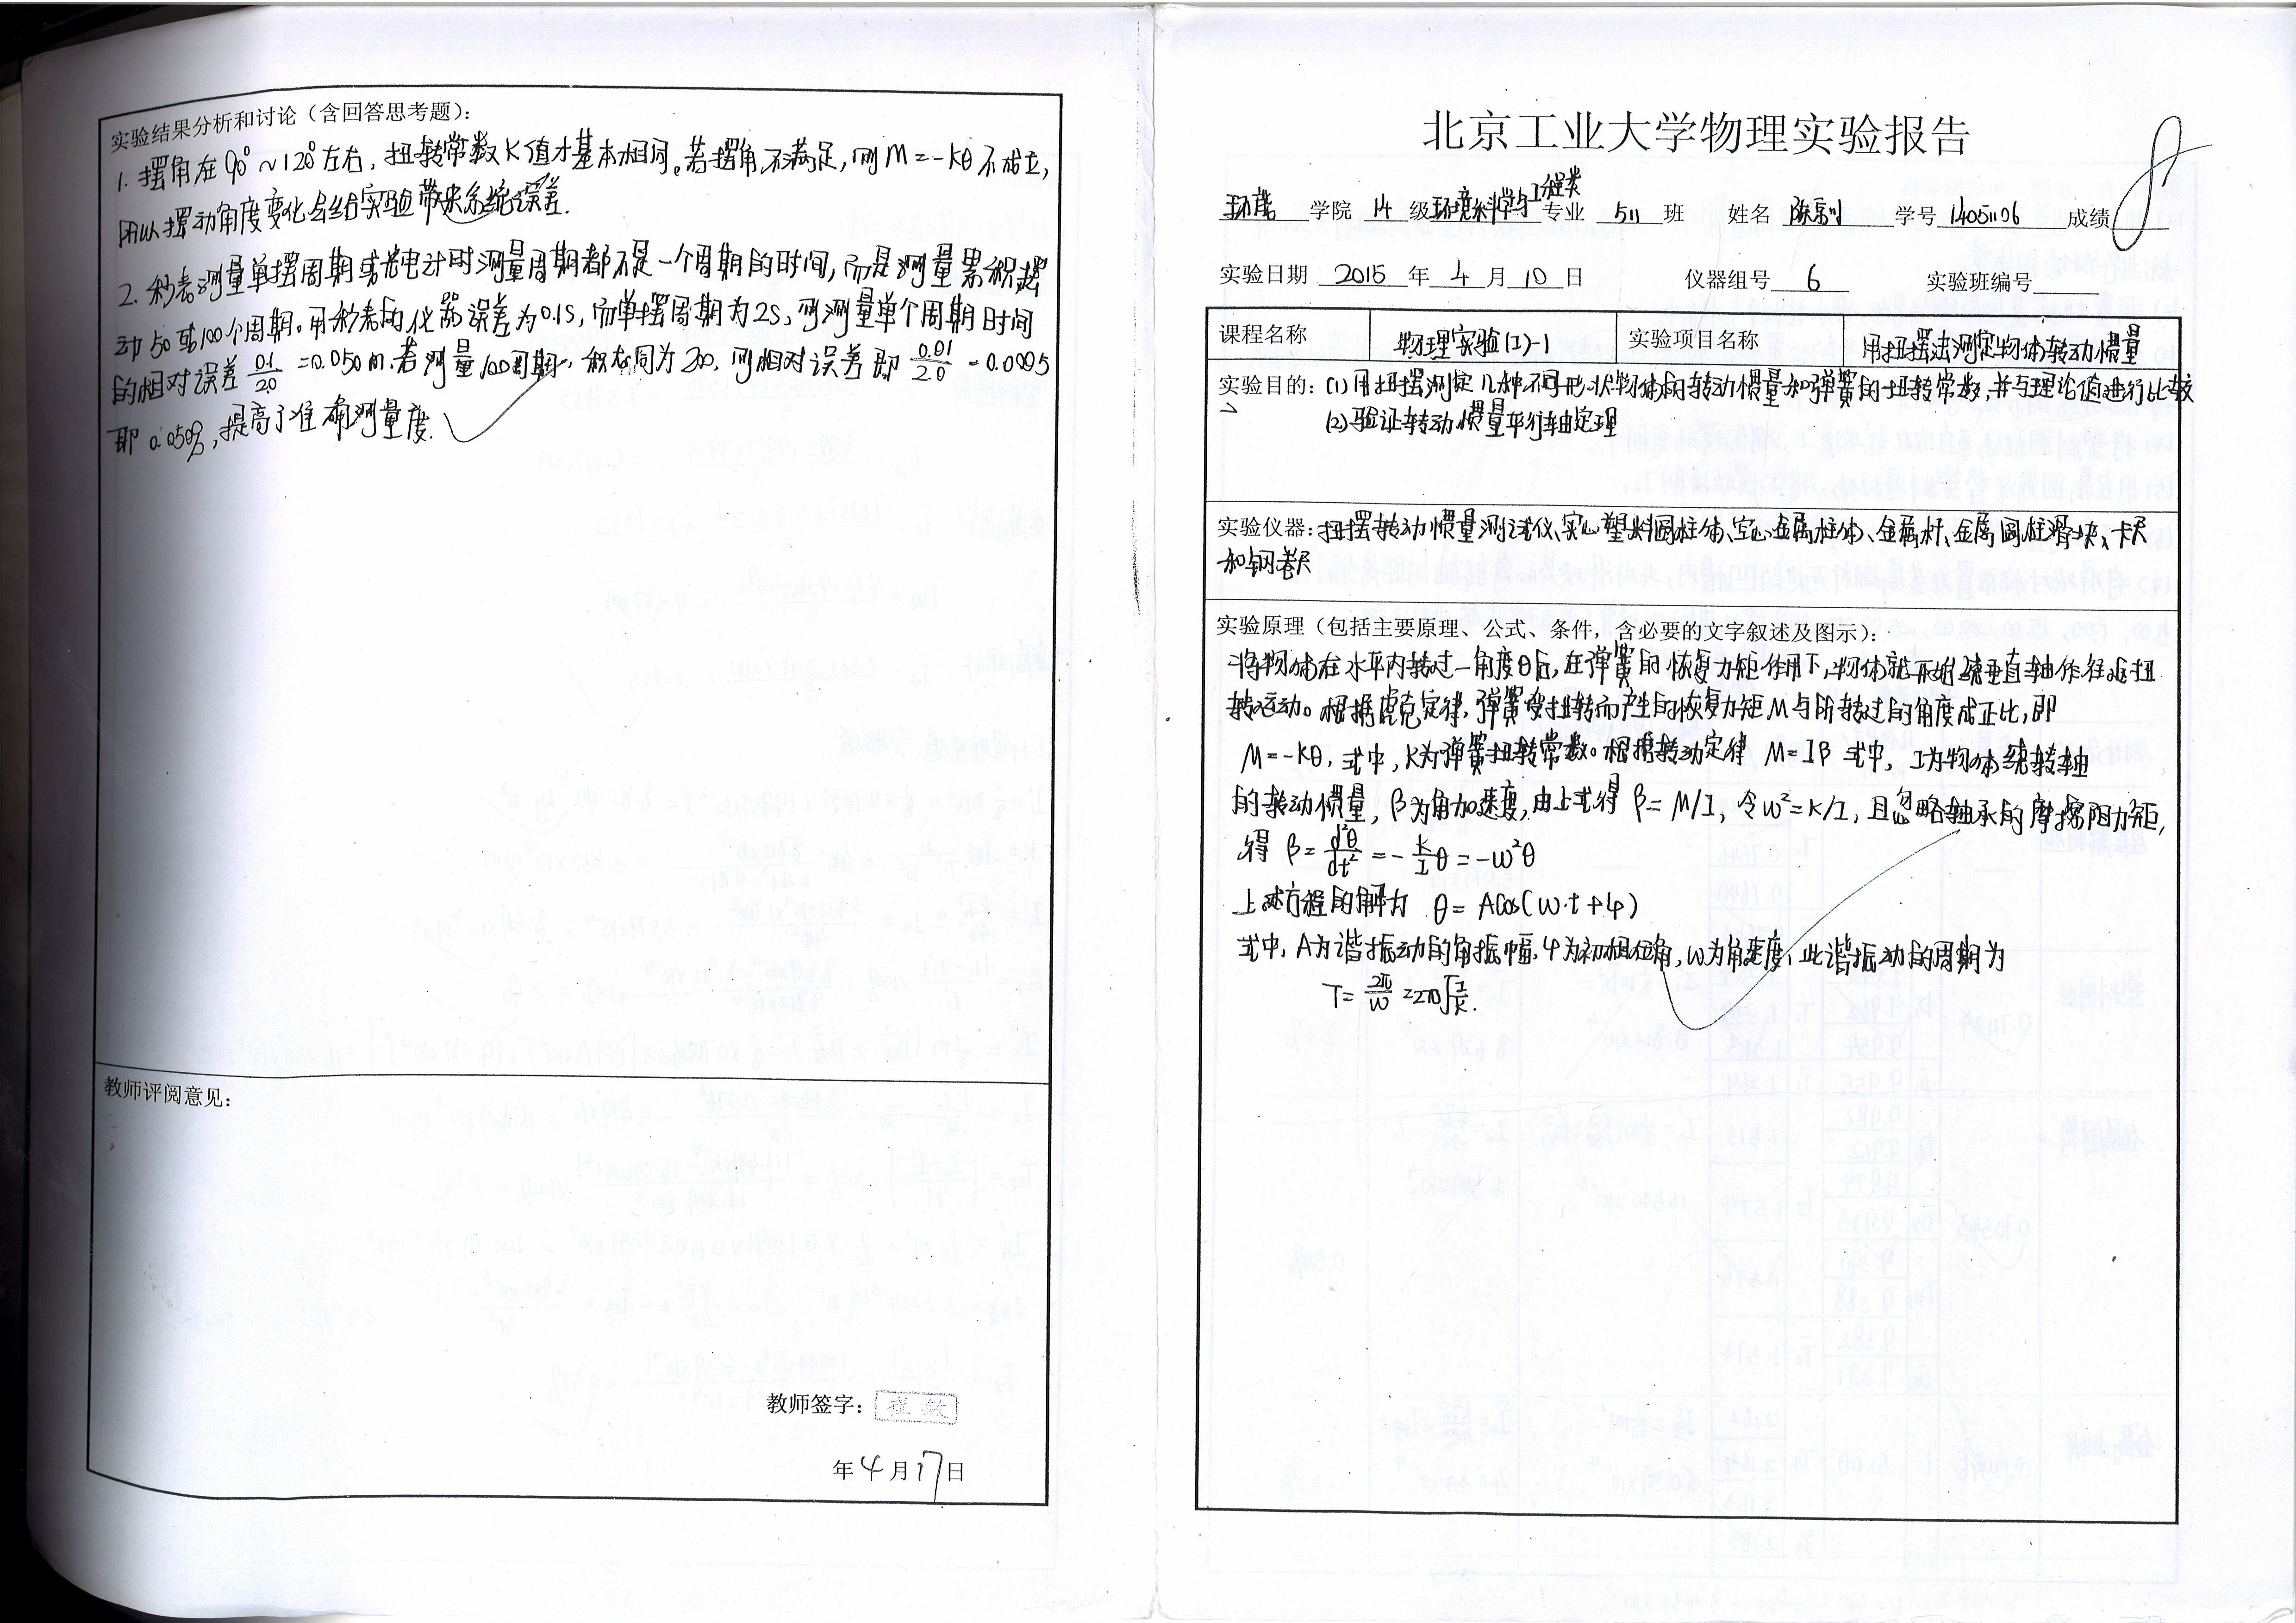 实验结果分析和讨论（含回答思考题）：
1. 摆角在90°~120°左右，扭转常数K值才基本相同。若摆角不满足，则M=-Kθ不成立，
所以摆动角度变化会给实验带来系统误差.
2. 秒表测量单摆周期或光电计时测量周期都不是一个周期的时间，而是测量累积摆
动50或100个周期。用秒表的仪器误差为0.1s，而单摆周期为2s，则测量单个周期时间
的相对误差 0.1/2.0 =0.050 若测量100周期，积 为200，则相对误差即 0.01/2.0 =0.0005
即0.050%，提高了准确测量度.
教师评阅意见：
教师签字：
年4月17日
北京工业大学物理实验报告
环能 学院 14 级 环境科学与工程类 专业 511 班 姓名 学号 14051106 成绩 8
实验日期 2015 年 4 月 10 日 仪器组号 6 实验班编号
课程名称 物理实验(I)-1 实验项目名称 用扭摆法测定物体转动惯量
实验目的：(1)用扭摆测定几种不同形状物体的转动惯量和弹簧的扭转常数，并与理论值进行比较
(2)验证转动惯量平行轴定理
实验仪器：扭摆转动惯量测试仪、实心塑料圆柱体、空心金属柱体、金属杆、金属圆柱滑块、卡尺
和钢卷尺
实验原理（包括主要原理、公式、条件，含必要的文字叙述及图示）：
将物体在水平内转过一角度θ后，在弹簧的恢复力矩作用下，物体就开始绕垂直轴作往返扭
转运动。根据虎克定律，弹簧受扭转而产生的恢复力矩M与所转过的角度成正比，即
M=-Kθ，式中，K为弹簧扭转常数。根据转动定律 M=Iβ 式中，I为物体绕转轴
的转动惯量，β为角加速度，由上式得 β=M/I，令ω²=K/I，且忽略轴承的摩擦阻力矩，
得 β= d²θ/dt² =- K/I θ=-ω²θ
上述方程的解为 θ=Acos(ω·t+φ)
式中，A为谐振动的角振幅，φ为初相位角，ω为角速度，此谐振动的周期为
T= 2π/ω =2π√(I/K).